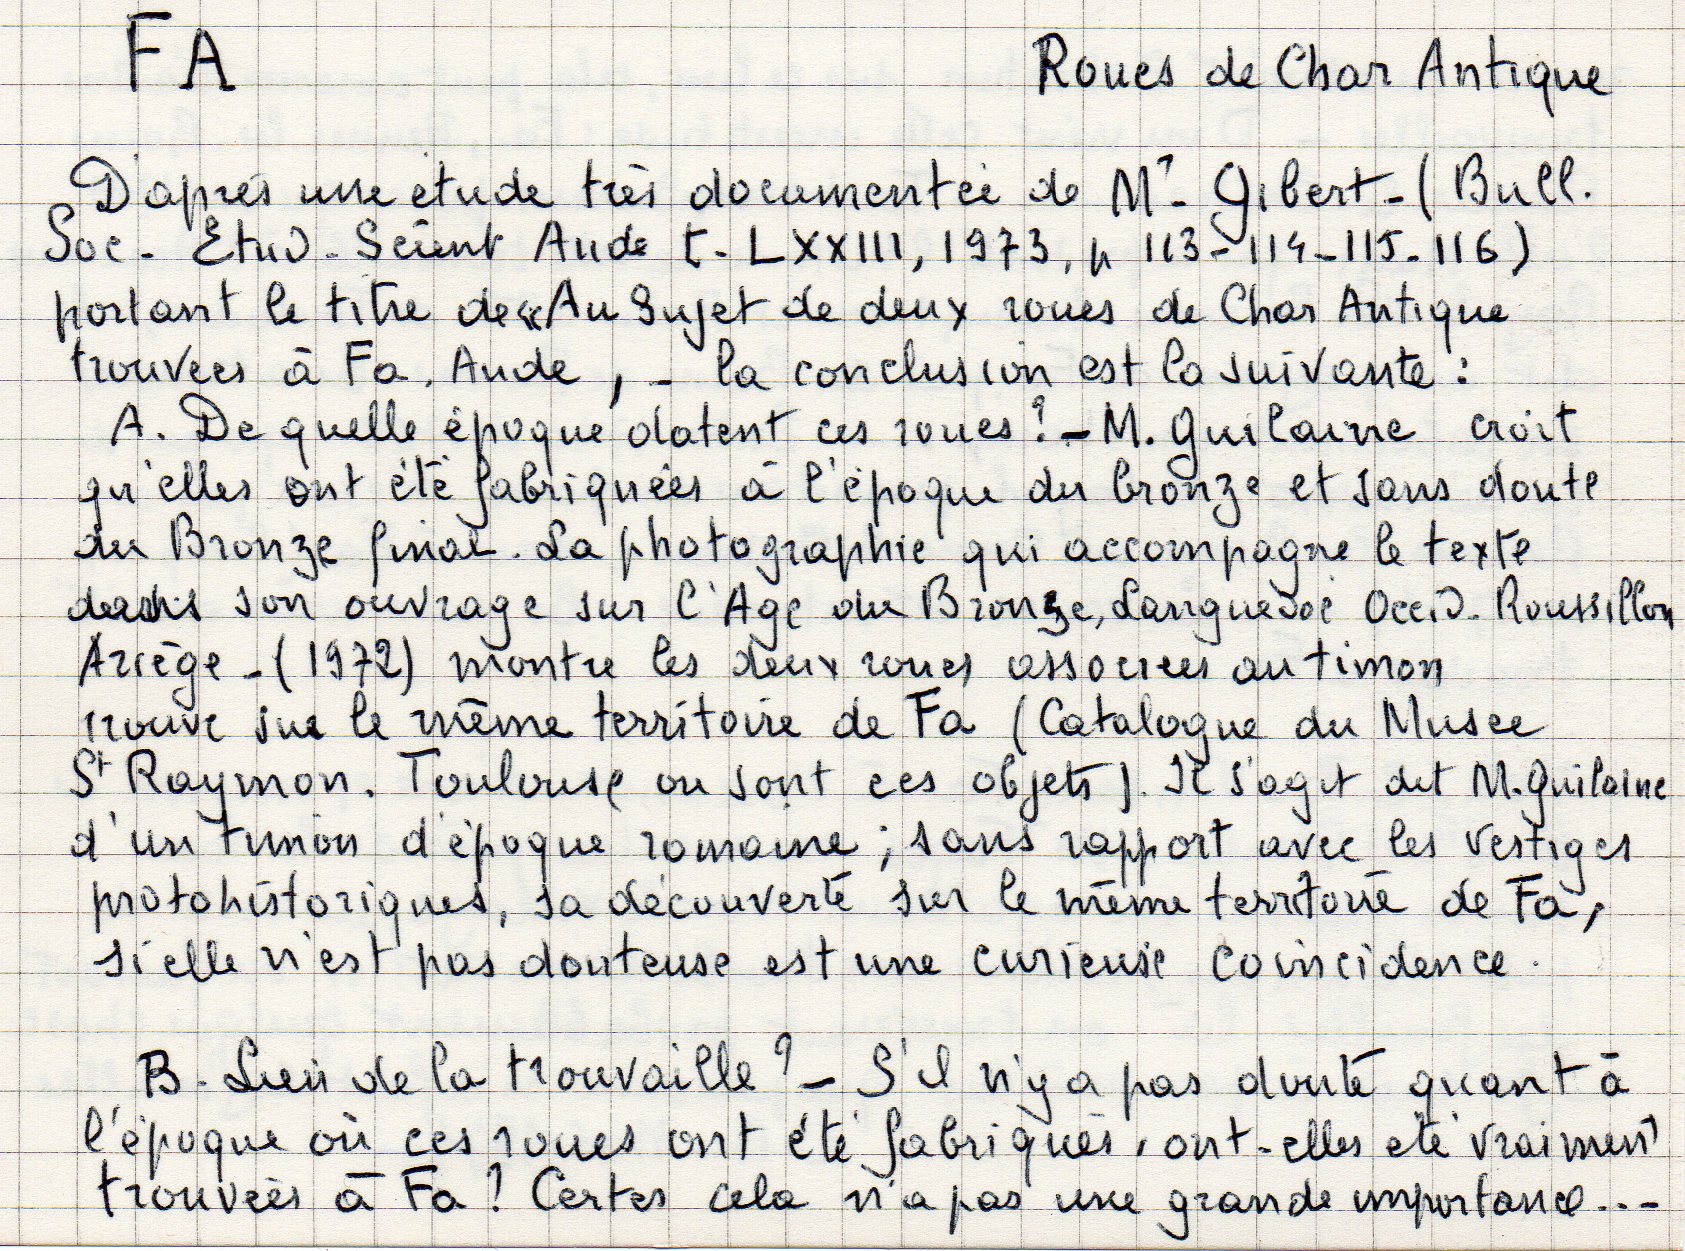 FA
Roues de Char Antique
D'après une étude très documentée de Mr. Gibert - ( Bull.
Soc. Etud. Scient Aude t. LXXIII, 1973, p 113-114-115-116)
portant le titre de « Au Sujet de deux roues de Char Antique
trouvées à Fa. Aude, - la conclusion est la suivante :
A. De quelle époque datent ces roues ? - M. Guilaine croit
qu'elles ont été fabriquées à l'époque du bronze et sans doute
du Bronze final. La photographie qui accompagne le texte
dans son ouvrage sur l'Age du Bronze, Languedoc Occid. Roussillon
Ariège - (1972) montre les deux roues associées au timon
trouvé sur le même territoire de Fa (Catalogue du Musée
St Raymon. Toulouse ou sont ces objets). Il s'agit dit M. Guilaine
d'un timon d'époque romaine ; sans rapport avec les vestiges
protohistoriques, sa découverte sur le même territoire de Fa,
si elle n'est pas douteuse est une curieuse coincidence.
B. Lieu de la trouvaille ? - S'il n'y a pas doute quant à
l'époque où ces roues ont été fabriqués, ont-elles été vraiment
trouvées à Fa ? Certes cela n'a pas une grande importance...